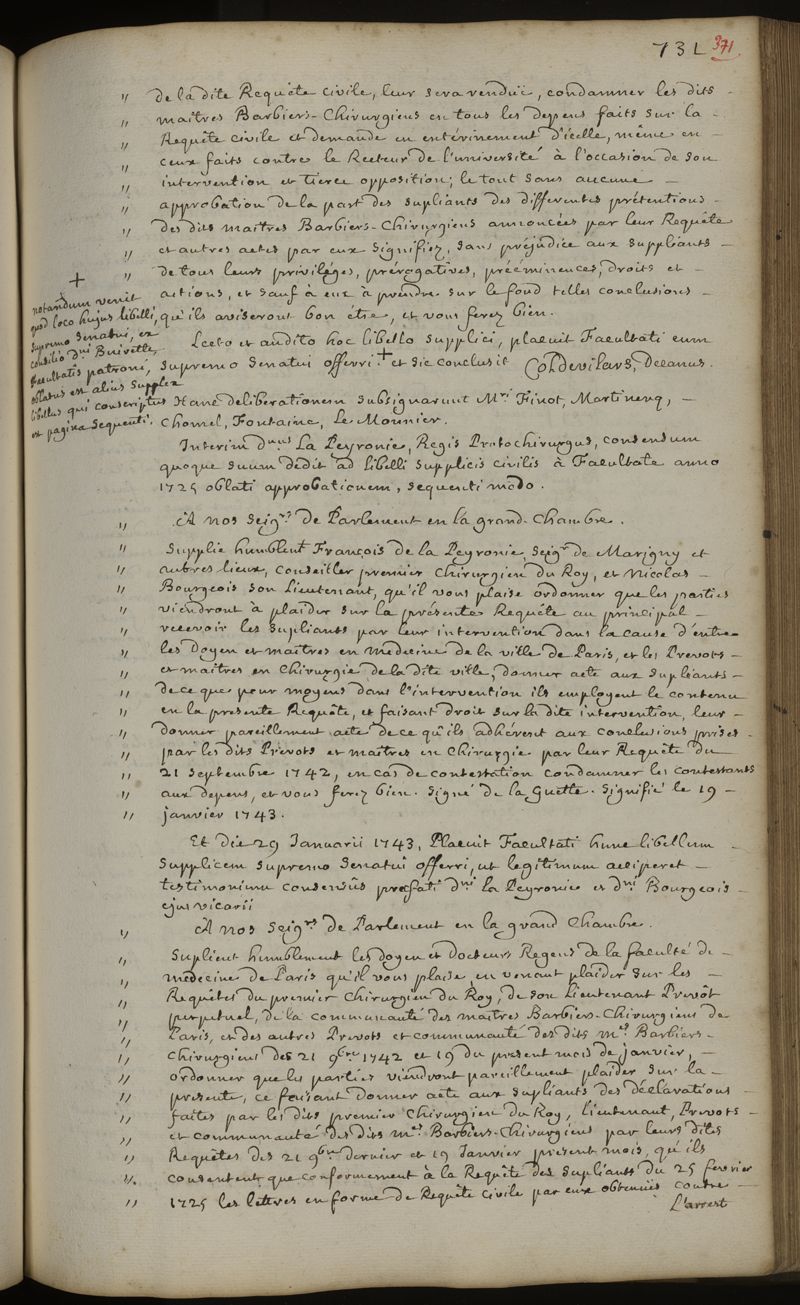 731 371
" de la dite Requête civile, leur sera renduë, condamner les dits
" maîtres Barbiers-Chirurgiens en tous les depens faits sur la
" Requête civile et demande en enterinement d'icelle, même en
" ceux faits contre le Recteur de l'université à l'occasion de son
" intervention et tierce opposition; le tout sans aucune
" approbation de la part des supliants des differentes prétentions
" des dits maîtres Barbiers-Chirurgiens annoncées par leur Requête
" et autres actes par eux signifiez, sans préjudice aux suppliants
" de tous leurs privilèges, prérogatives, prééminences, droits et
actions, et sauf à eux à prendre sur le fond telles conclusions
qu'ils aviseront bon être, et vous ferez bien.
+
notandum venit
quod loco hujus libelli,
supremo Senatui, ex
consilio Dni Buirette,
facultatis patroni,
oblatus est alius supplex
libellus qui conscriptus
est pagina sequenti.
Lecto et audito hoc libello supplici, placuit Facultati eum
supremo Senatui offerri + et sic conclusit Col Devilars, Decanus.
Hanc deliberationem subsignarunt Mri Finot, Martinenq,
Chomel, Fontaine, Le Monnier.
Interim Dnus La Peyronie, Regis Protochirurgus, consensum
quoque suum dedit ad libelli supplicis civilis à Facultate anno
1725 oblati approbationem, sequenti modo.
" A nos Seigrs de Parlement en la grand-Chambre.
" Supplie humblemt François de la Peyronie, Seigr de Marigny et
" autres lieux, conseiller premier Chirurgien du Roy, et Nicolas
" Bourgeois son Lieutenant, qu'il vous plaise ordonner que les parties
" viendront à plaider sur la présente Requête au principal
" recevoir les supliants par leur intervention dans la cause d'entre
" les Doyen et maîtres en medecine de la ville de Paris, et les Prevots
" et maîtres en Chirurgie de la dite ville, donner acte aux supliants
" de ce que pour moyens dans l'intervention ils employent le contenu
" en la presente Requête, et faisant droit sur la dite intervention, leur
" donner pareillement acte de ce qu'ils adhérent aux conclusions prises
" par les dits Prevots et maîtres en Chirurgie par leur Requête du
" 21 Septembre 1742, en cas de contestation condamner les contestants
" aux depens, et vous ferez bien. Signé de la Guette. Signifié le 19
" janvier 1743.
Et die 29 Januarii 1743, Placuit Facultati hunc libellum
supplicem supremo Senatui offerri, ut legitimum acciperet
testimonium consensûs praefati Dni la Peyronie et Dni Bourgeois
ejus vicarii
" A nos Seigrs de Parlement en la grand Chambre.
" Suplient humblement les doyen et Docteurs Regens de la faculté de
" medecine de Paris qu'il vous plaise, en venant plaider sur les
" Requêtes du premier Chirurgien du Roy, de son Lieutenant Prevôt
" perpetuel, de la communauté des maîtres Barbiers-Chirurgiens de
" Paris, et des autres Prevots et communauté des dits mes Barbiers-
" Chirurgiens des 21 9bre 1742 et 19 du present mois de janvier,
" ordonner que les parties viendront pareillement plaider sur la
" presente, ce faisant donner acte aux supliants des déclarations
" faites par les dits premier Chirurgien du Roy, Lieutenant, Prevots
" et communauté des dits mes Barbiers-Chirurgiens par leurs dites
" Requêtes des 21 9bre dernier et 19 Janvier present mois, qu'ils
" consentent que conformement à la Requête des supliants du 25 fevrier
" 1725 les lettres en forme de Requête civile par eux obtenuës contre
L'arrest